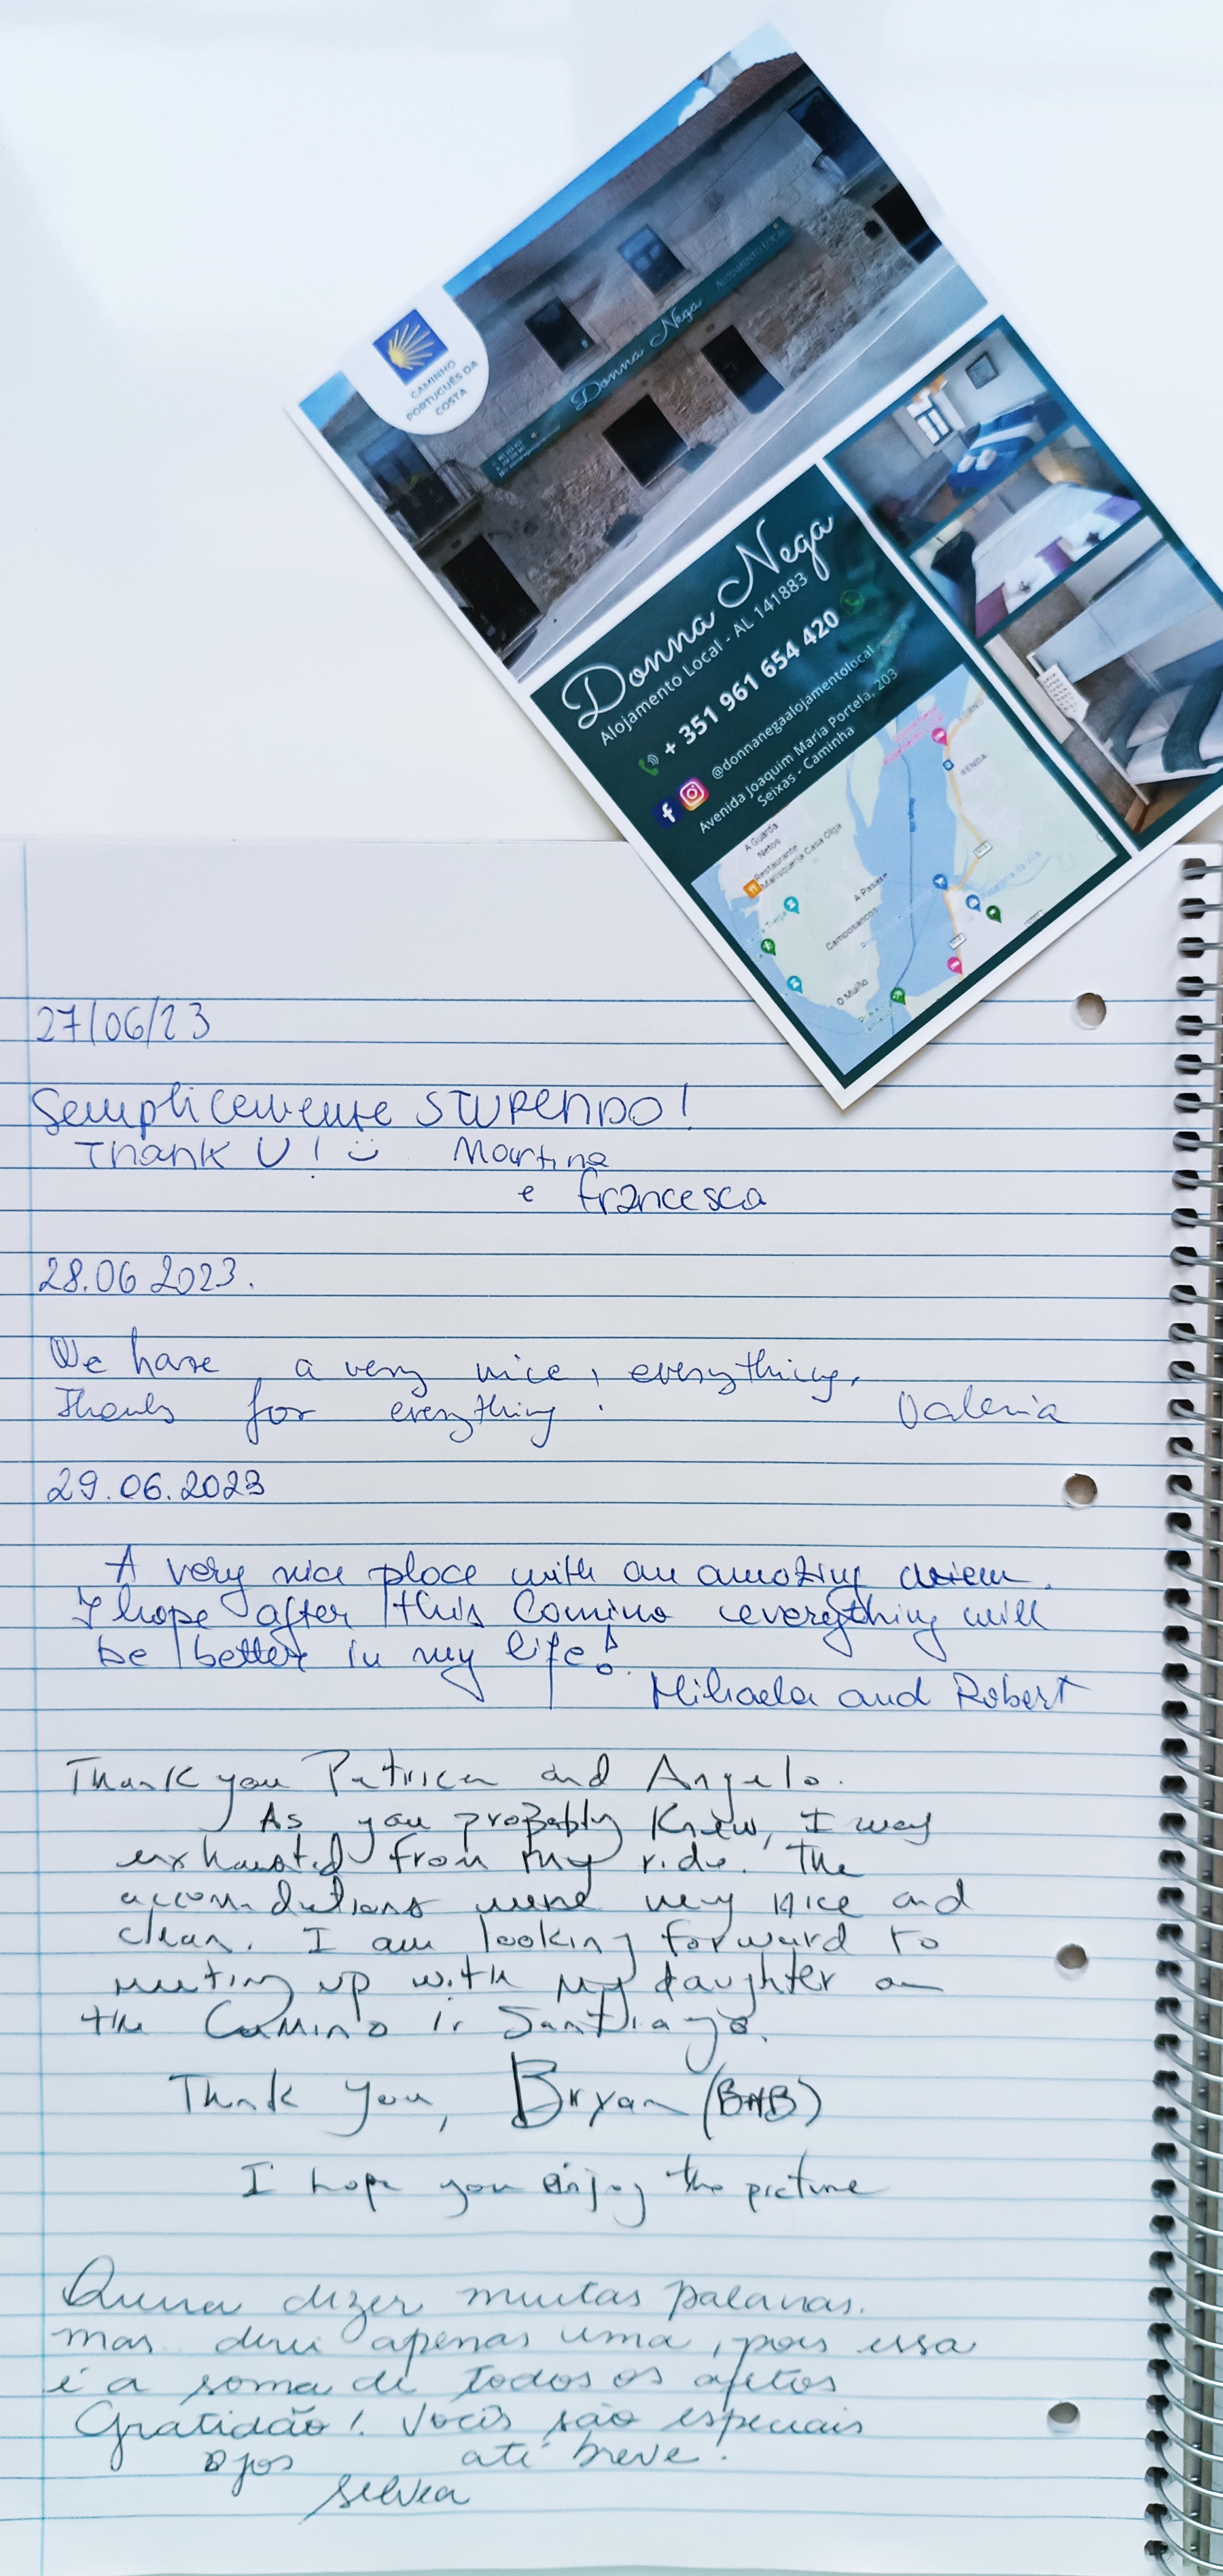 CAMINHO
PORTUGUÊS DA
COSTA
Donna Nega
ALOJAMENTO LOCAL
Donna Nega
Alojamento Local - AL 141883
+ 351 961 654 420
@donnanegaalojamentolocal
Avenida Joaquim Maria Portela, 203
Seixas - Caminha
RENDA
A Guarda
Netos
Restaurante
Marisqueria Casa Olga
A Pasaxe
Camposancos
O Muiño
27/06/23
Semplicemente STUPENDO!
Thank U! Martina
e Francesca
28.06 2023.
We have a very nice, everything,
Thanks for everything. Valeria
29.06.2023
A very nice place with an amazing
I hope after this Camino everything will
be better in my life!
Mihaela and Robert
Thank you Patricia and Angelo.
As you probably knew, I was
exhausted from my ride. The
accomodations were very nice and
clean. I am looking forward to
meeting up with my daughter on
the Camino in Santiago.
Thank You, Bryan (BNB)
I hope you enjoy the picture
Queria dizer muitas palavras.
mas direi apenas uma, pois essa
é a soma de todos os afetos
Gratidão! Vocês são especiais
até breve.
Silvia